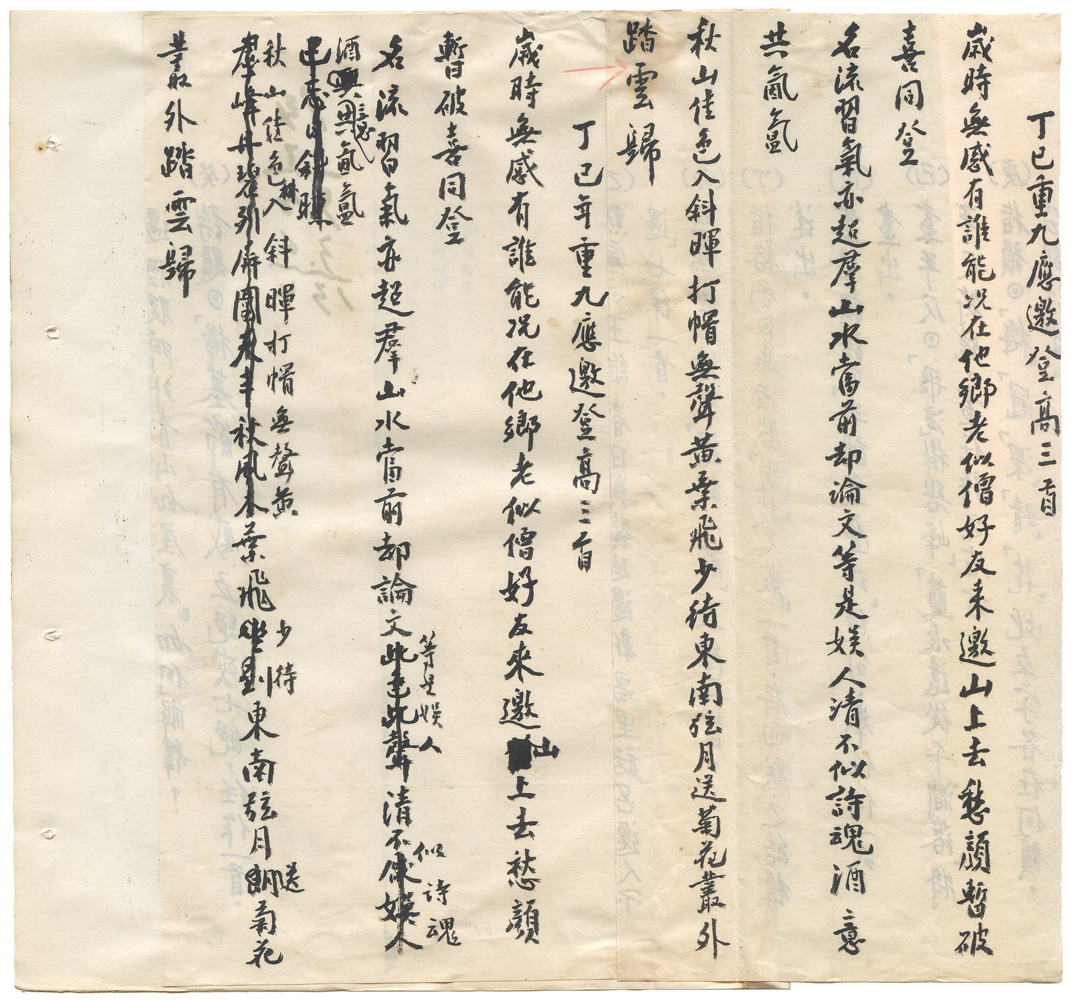 丁巳重九應邀登高三首
歲時無感有誰能况在他鄉老似僧好友来邀山上去愁顏暫破
喜同登
名流習氣亦超羣山水當前却論文等是娱人清不似詩魂酒意
共氤氳
秋山佳色入斜暉打帽無聲黄葉飛少待東南弦月送菊花叢外
踏雲歸
丁巳年重九應邀登高三首
歲時無感有誰能况在他鄉老似僧好友來邀山上去愁顏
暫破喜同登
名流習氣亦超羣山水當前却論文等是娱人清不似詩魂
酒意共氤氳
秋山佳色入斜暉打帽無聲黄
葉飛少待東南弦月送菊花
叢外踏雲歸